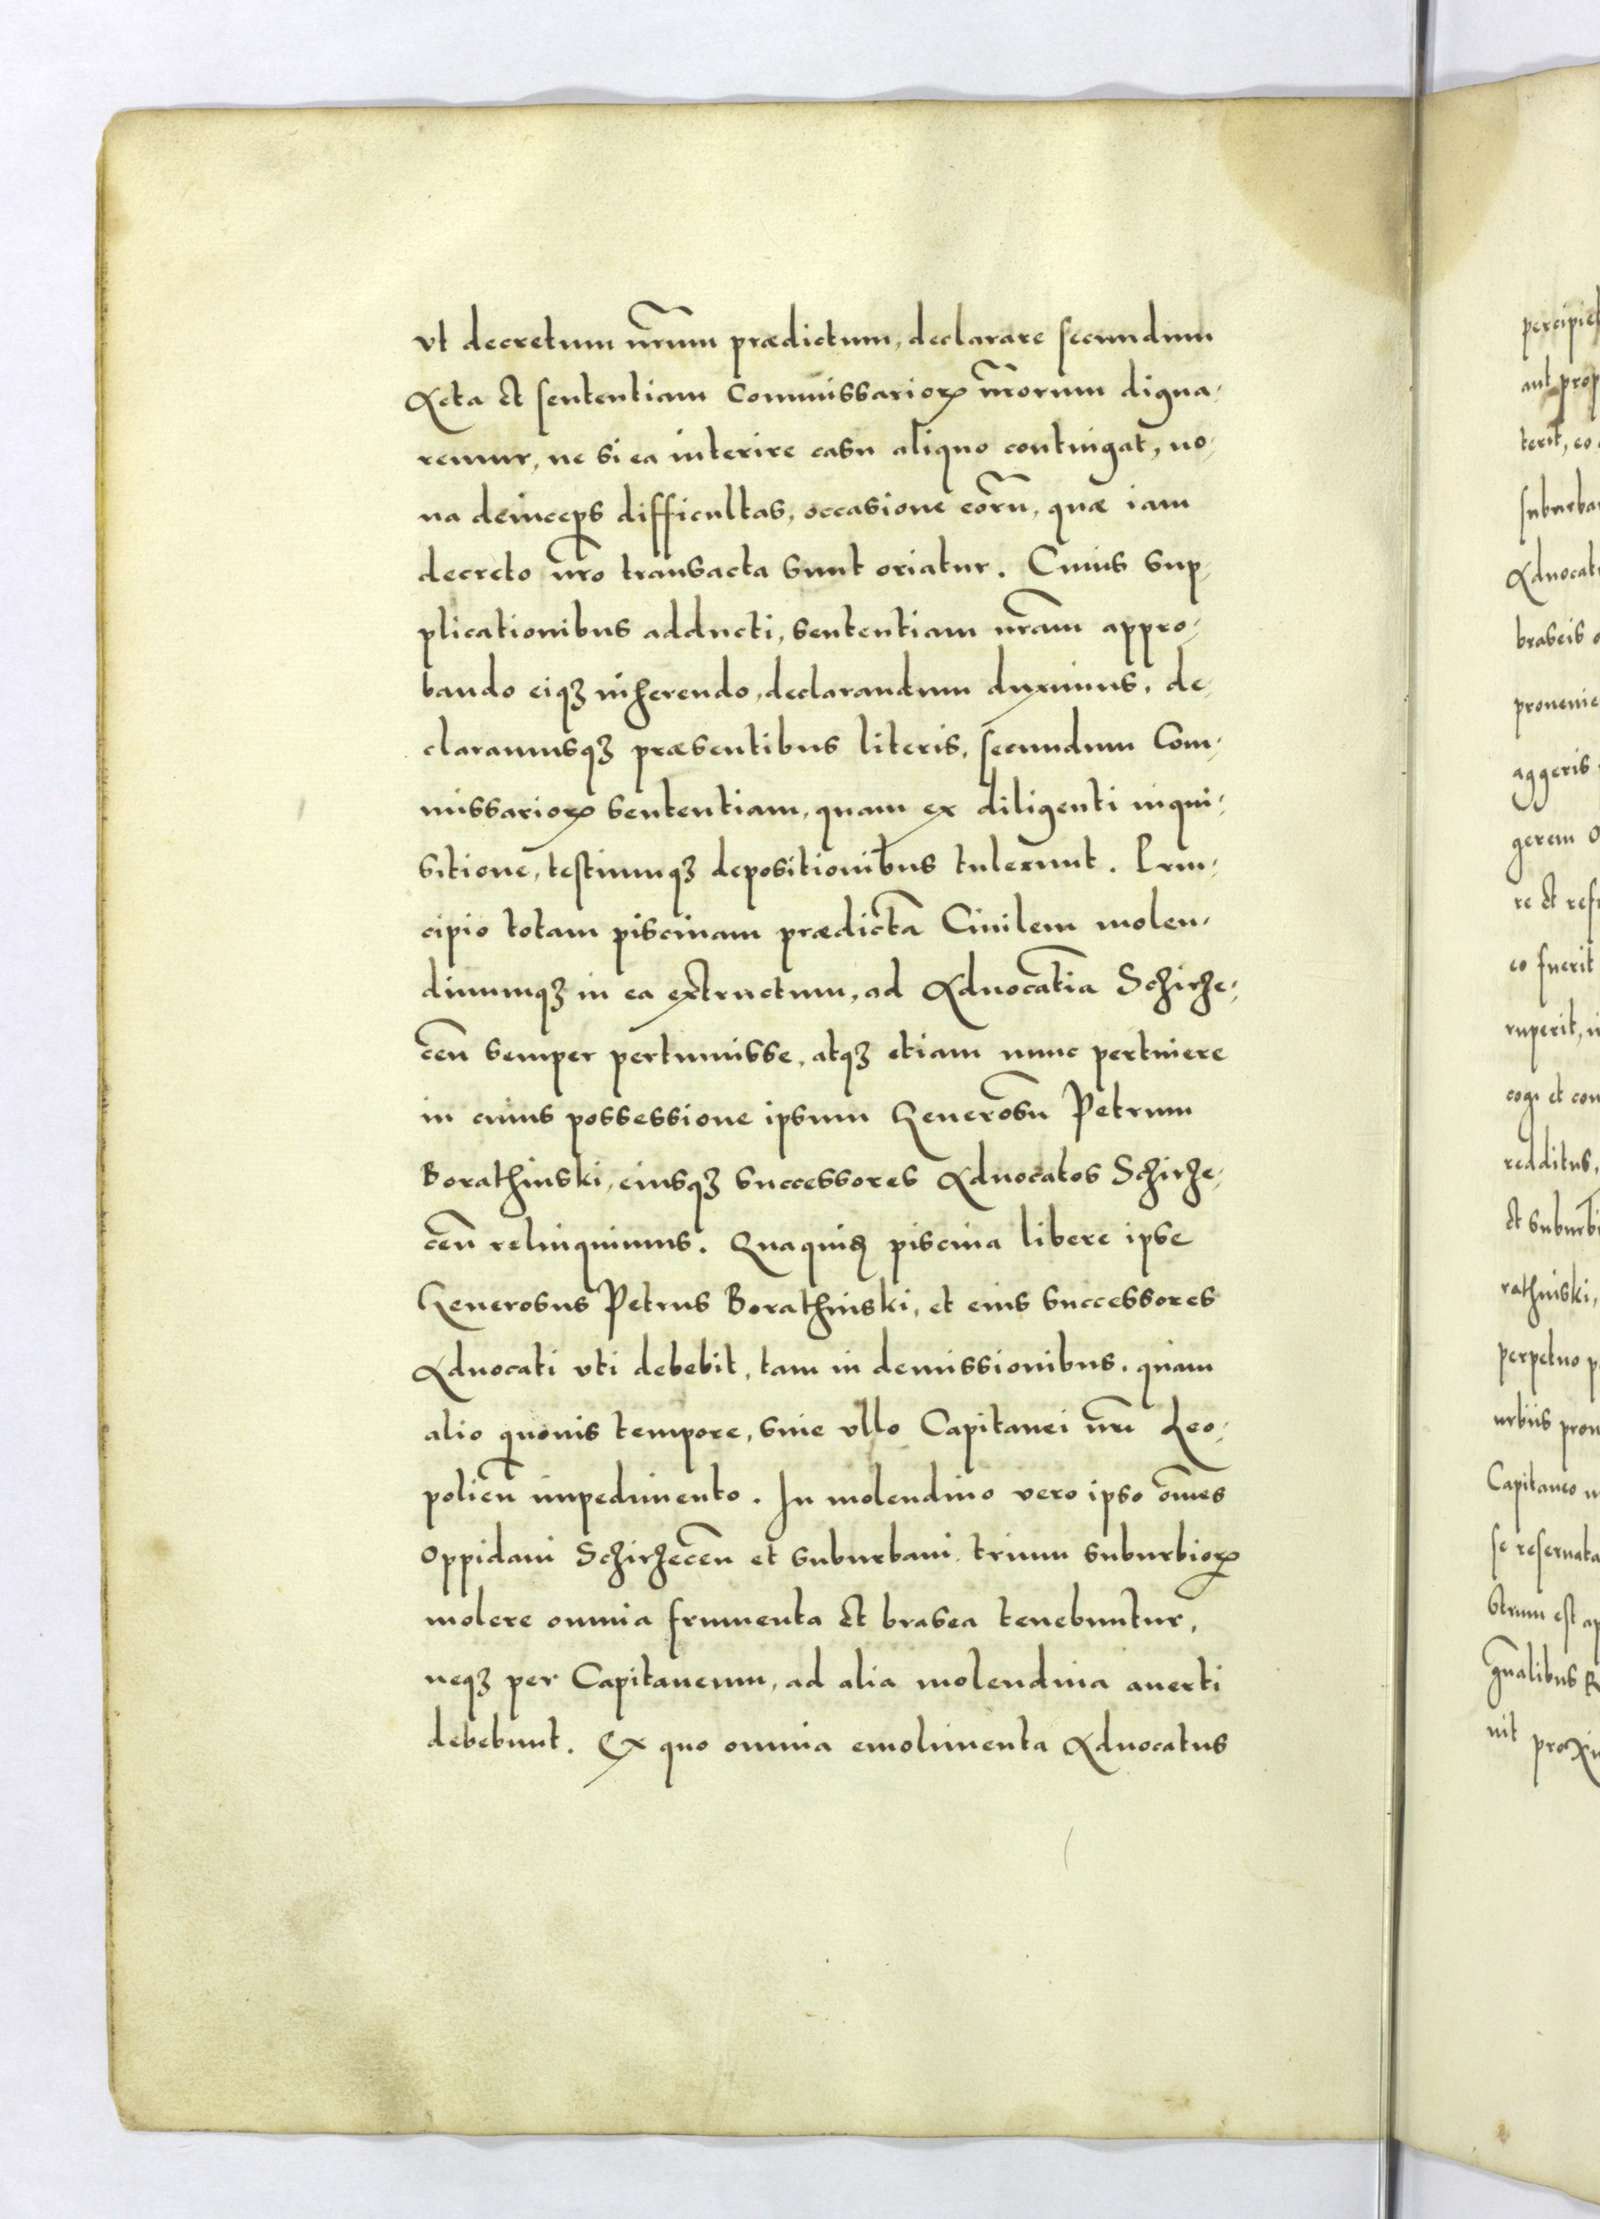 vt decretum nr̃um prædictum, declarare secundum
Acta et sententiam Commissarioꝝ nr̃orum digna-
remur, ne si ea interire casu aliquo contingat, no-
ua deinceps difficultas, occasione eorũ, quæ iam
decreto nr̃o transacta sunt oriatur. Cuius sup-
plicationibus adducti, sententiam nr̃am appro-
bando eiqꝫ inherendo, declarandum duximus, de-
claramusqꝫ præsentibus literis, secundum Com-
missarioꝝ sententiam, quam ex diligenti inqui-
sitione, testiumqꝫ depositionibus tulerunt. Prin-
cipio totam piscinam prædictã Ciuilem molen-
dinumqꝫ in ea extructum, ad Aduocatiã Schirze-
ceñ semper pertinuisse, atqꝫ etiam nunc pertinere
in cuius possessione ipsum Generosũ Petrum
Borathinski, eiusqꝫ successores Aduocatos Schirze-
ceñ relinquimus. Quaquidẽ piscina libere ipse
Generosus Petrus Borathinski, et eius successores
Aduocati vti debebit, tam in demissionibus, quam
alio quouis tempore, sine vllo Capitanei nr̃i Leo-
polieñ impedimento. In molendino vero ipso om̃es
Oppidani Schirzeceñ et suburbani trium suburbioꝝ
molere omnia frumenta et brasea tenebuntur,
neqꝫ per Capitaneum, ad alia molendina auerti
debebunt. Ex quo omnia emolimenta Aduocatus